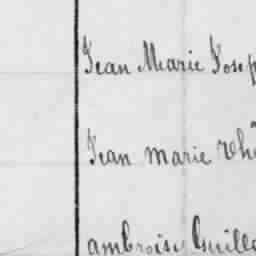 Jean Marie Josep
Jean marie Thé
ambroise Guillo